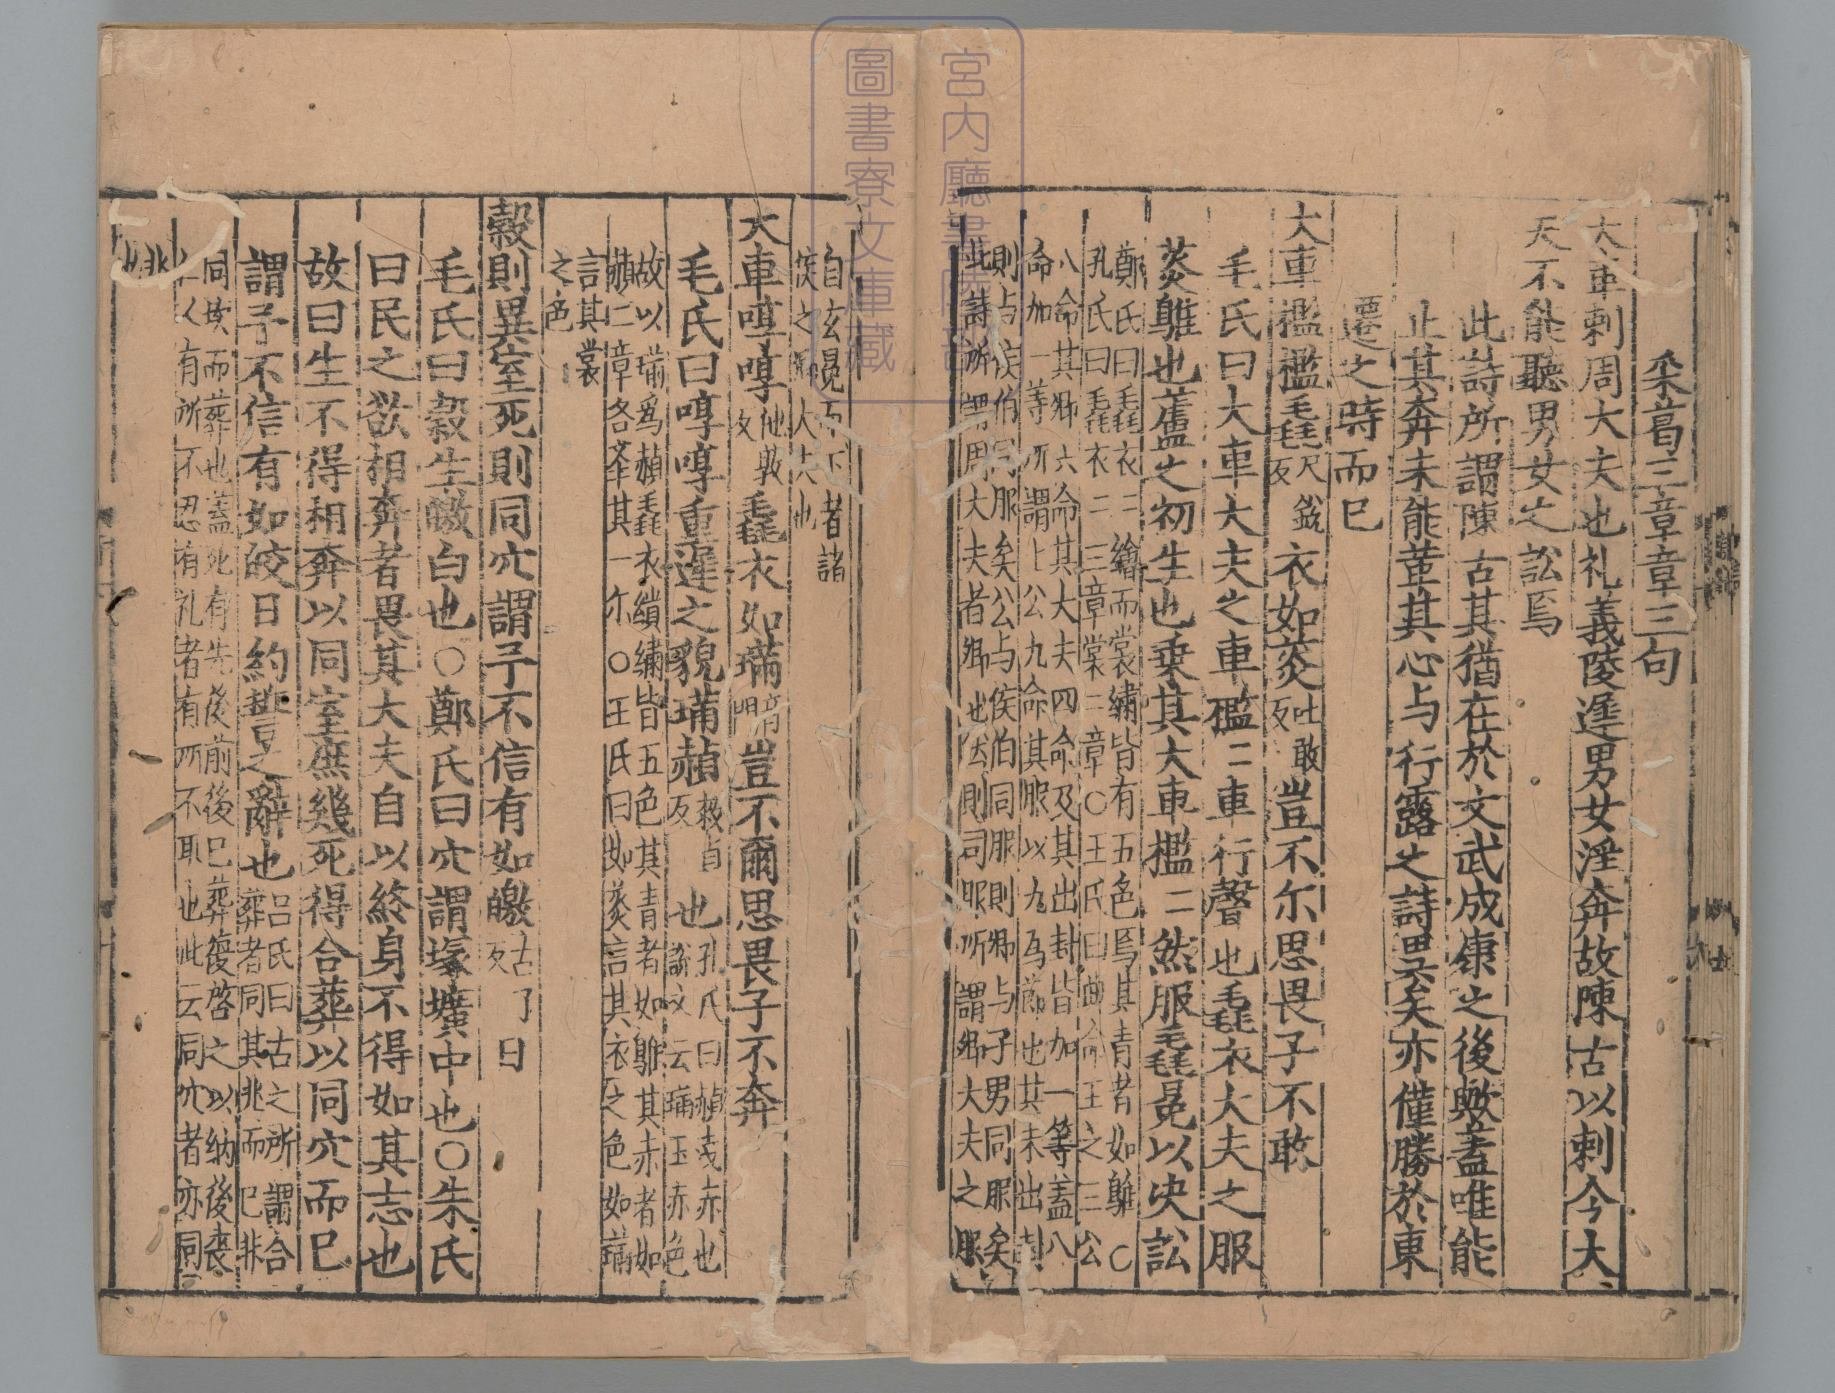 采葛三章章三句
大車刺周大夫也礼義陵遅男女淫奔故陳古以刺今大
夫不能聽男女之訟焉
此詩所謂陳古其猶在於文武成康之後歟蓋唯能
止其奔未能革其心与行露之詩異矣亦僅勝於東
遷之時而已
大車檻檻毳尺銳反衣如菼吐敢反豈不尔思畏子不敢
毛氏曰大車大夫之車檻二車行聲也毳衣大夫之服
菼鵻也蘆之初生也乗其大車檻二然服毳冕以决訟
鄭氏曰毳衣二繪而裳繡皆有五色焉其青者如鵻○
孔氏曰毳衣二三章裳二章○王氏曰典命王之三公
八命其卿六命其大夫四命及其出封皆加一等蓋八
命加一等所謂上公九命其服以九為節也其未出封
則与侯伯同服矣公与侯伯同服則卿与子男同服矣
此詩所謂周大夫者卿也然則同服所謂卿大夫之服
自玄冕而下者諸
侯之大夫也
大車啍啍他敦反毳衣如璊音門豈不爾思畏子不奔
毛氏曰啍啍重遲之貌璊赬敕貞反也孔氏曰赬浅赤也
說文云璊玉赤色
故以璊為赬毳衣繢繡皆五色其青者如鵻其赤者如
赬二章各举其一尔○王氏曰如菼言其衣之色如璊
言其裳
之色
穀則異室死則同穴謂子不信有如皦古了反日
毛氏曰穀生皦白也○鄭氏曰穴謂塚壙中也○朱氏
曰民之欲相奔者畏其大夫自以終身不得如其志也
故曰生不得相奔以同室庶幾死得合葬以同穴而已
謂子不信有如皎日約誓之辭也吕氏曰古之所謂合
葬者同其兆而已非
同坎而葬也蓋死有先後前後已葬復啓之以納後喪
人有所不忍有礼者有所不取也此云同穴者亦同
兆
也
宮内廳書陵部
圖書寮文庫藏